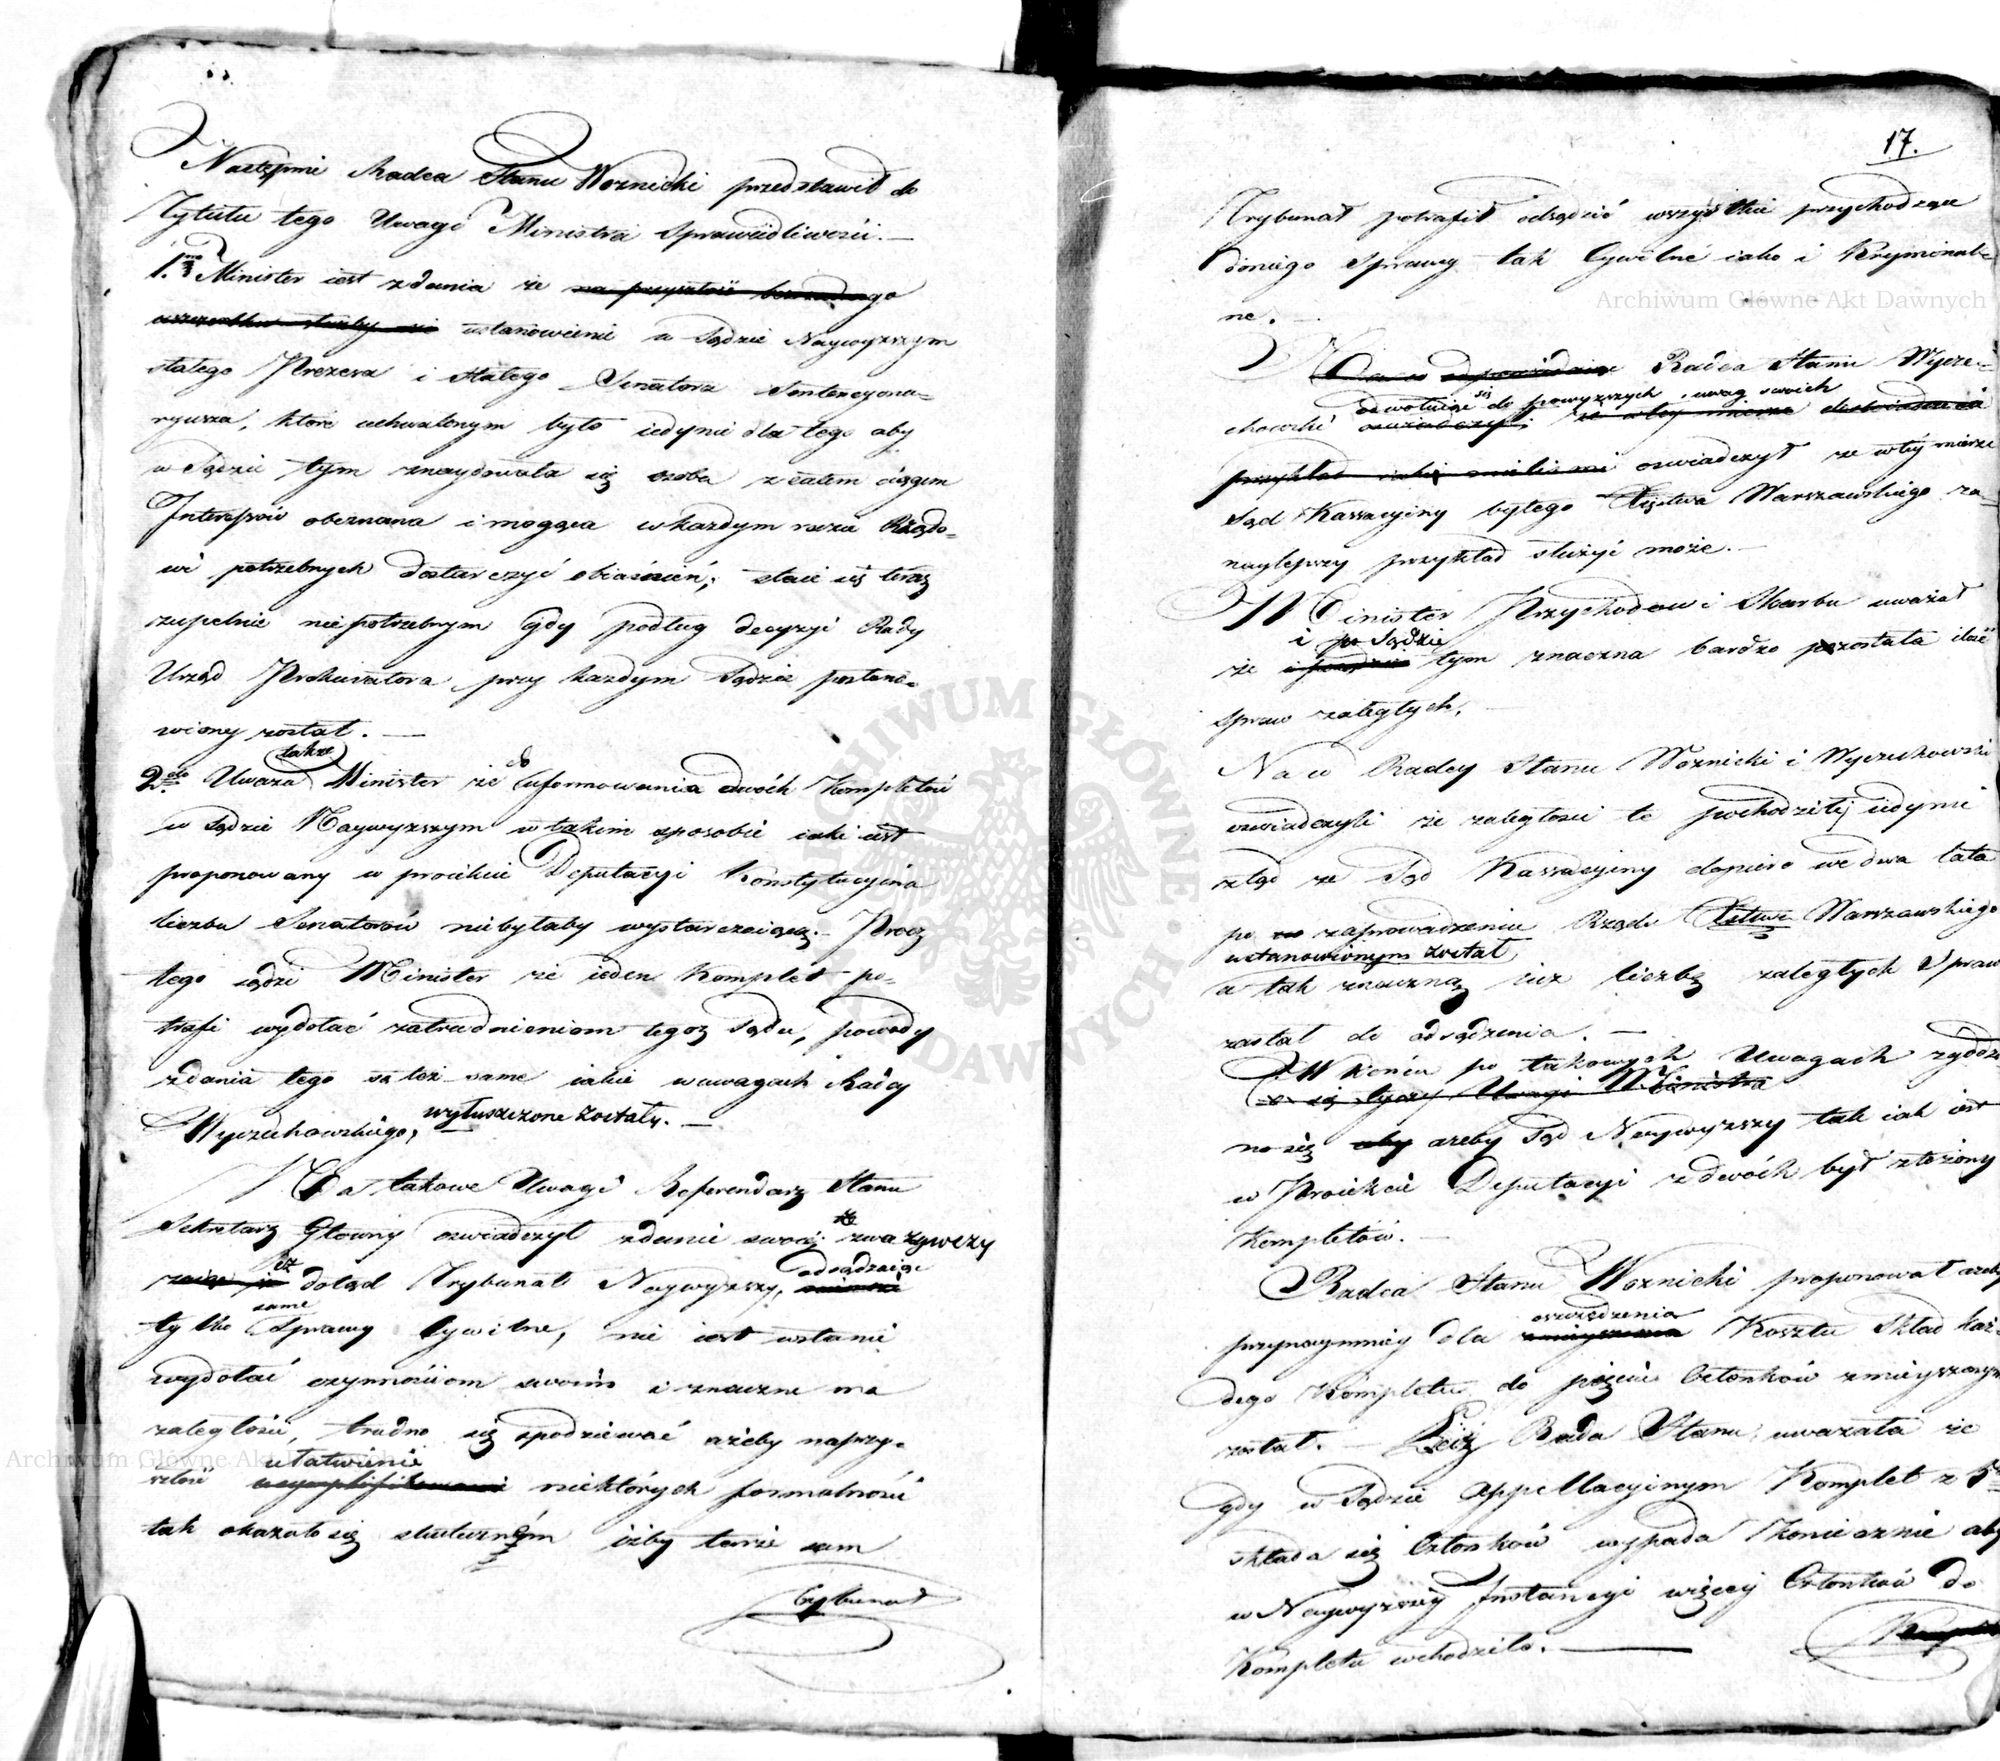 Następnie Radca Stanu Woznicki przedstawił do
Tytułu tego Uwagi Ministra Sprawiedliwości. —
1.mo Minister iest zdania że na przyszłość
ustanowienie w Sądzie Naywyższym
stałego Prezesa i stałego Senatora Sentencyona-
ryusza, które uchwalonym było iedynie dla tego aby
w Sądzie tym znaydowała się osoba z całem ciągiem
Interessów obeznana i mogąca w każdym razie Rządo-
wi potrzebnych dostarczyć obiaśnień, staie się teraz
zupełnie niepotrzebnym gdy podług decyzyi Rady
Urząd Prokuratora przy każdym Sądzie postano-
wiony został. —
także
2.do Uważa Minister że do uformowania dwóch Kompletów
w Sądzie Naywyższym w takim sposobie iaki iest
proponowany w proiekcie Deputacyi Konstytucyina
liczba Senatorów niebyłaby wystarczaiącą. Procz
tego sądzi Minister że ieden Komplet po-
trafi wydołać zatrudnieniom tegoz Sądu, powody
zdania tego są też same iakie w uwagach Radcy
Wyczechowskiego, wyłuszczone zostały. —
Na takowe Uwagi Referendarz Stanu
Sekretarz Głowny oswiadczył zdanie swoie, że zważywszy
iż dotąd Trybunał Naywyższy, odsądzaiąc
same
tylko Sprawy Cywilne, nie iest wstanie
wydołać czynnościom swoim i znaczne ma
zaległości, trudno się spodziewać ażeby naprzy-
ułatwienie
szłość niektórych formalności
tak okazało się skutecznem iżby tenże sam
Trybunał
17.
Trybunał potrafił odsądzić wszystkie przychodzące
doniego Sprawy tak Cywilne iako i Kryminal-
ne. —
Na to odpowiadaiąc Radca Stanu Wycze-
odwołuiąc się do powyższych uwag swoich
chowski oswiadczył, że w tey mierze
oswiadczył ze wtey mierze
Sąd Kassacyiny byłego Xięstwa Warszawskiego za
naylepszy przykład służyć może. —
Minister Przychodow i Skarbu uważał
i po Sądzie
że tym znaczna bardzo pozostała ilość
spraw zaległych. —
Na co Radcy Stanu Woznicki i Wyczechowski
oswiadczyli że zaległosci te pochodziły iedynie
ztąd ze Sąd Kassacyiny dopiero we dwa lata
po zaprowadzeniu Rządu Xięstwa Warszawskiego
ustanowionym został,
a tak znaczną iuz liczbę zaległych Spraw
zastał do odsądzenia. —
W końcu po takowych Uwagach zgodzo-
co się tyczy Uwagi Ministra
no się aby azeby Sąd Naywyższy tak iak iest
w Proiekcie Deputacyi z dwóch był złożony
Kompletów. —
Radca Stanu Woznicki proponował azeby
oszczędzenia
przynaymniey dla Kosztu Skład każ-
dego Kompletu do pięciu Członków zmnieyszonym
został. — Lecz Rada Stanu uważała że
gdy w Sądzie Appellacyinym Komplet z 5
składa się Członków wypada koniecznie aby
w Naywyższey Instancyi więcey Członków do
Kompletu wchodziło. —
Archiwum Główne Akt Dawnych
Archiwum Główne Akt Dawnych
ARCHIWUM GŁÓWNE AKT DAWNYCH